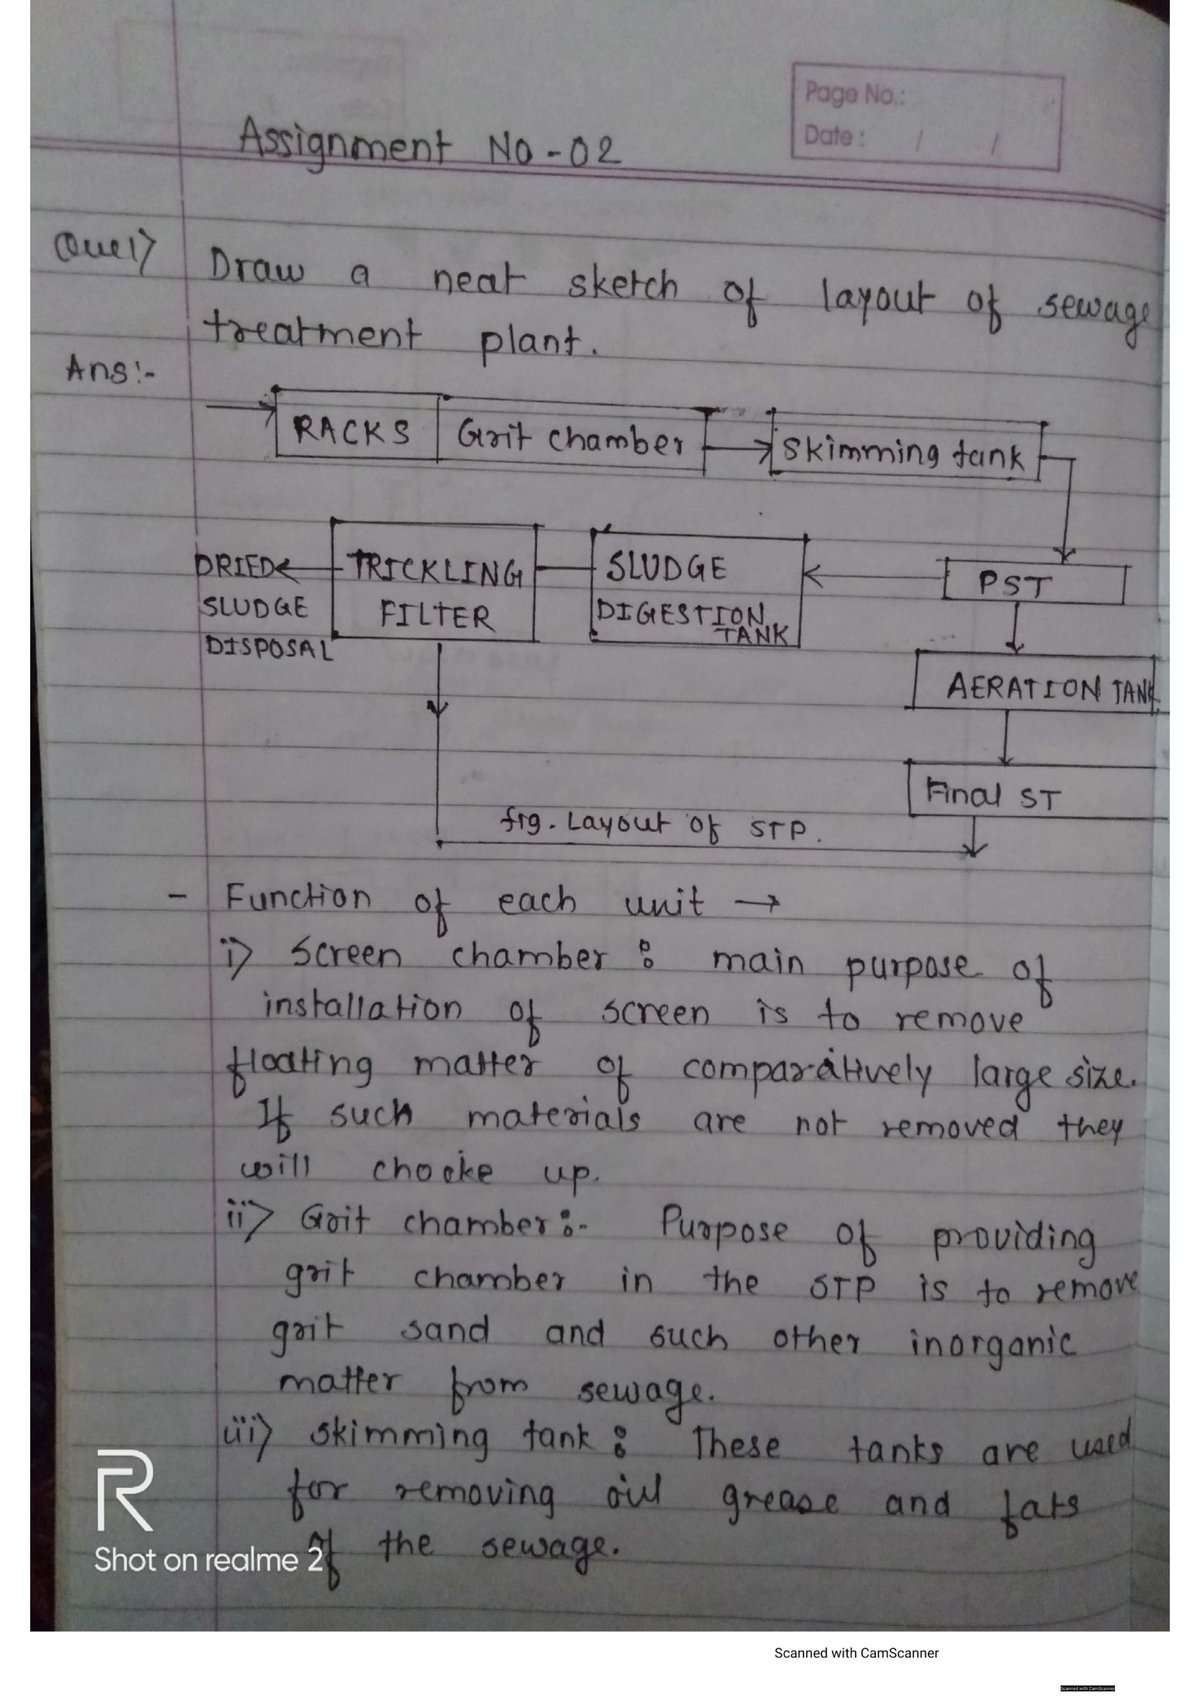 Page No.:
Date : / /
Assignment No-02
Que1) Draw a neat sketch of layout of sewage
treatment plant.
Ans:-
RACKS Grit chamber skimming tank
DRIED TRICKLING SLUDGE PST
SLUDGE FILTER DIGESTION
TANK
DISPOSAL
AERATION TANK
Final ST
fig. Layout of STP.
- Function of each unit →
i) Screen chamber : main purpose of
installation of screen is to remove
floating matter of comparatively large size.
If such materials are not removed they
will chocke up.
ii) Grit chamber:- Purpose of providing
grit chamber in the STP is to remove
grit sand and such other inorganic
matter from sewage.
iii) skimming tank : These tanks are used
for removing oil grease and fats
of the sewage.
R
Shot on realme 2
Scanned with CamScanner
Scanned with CamScanner